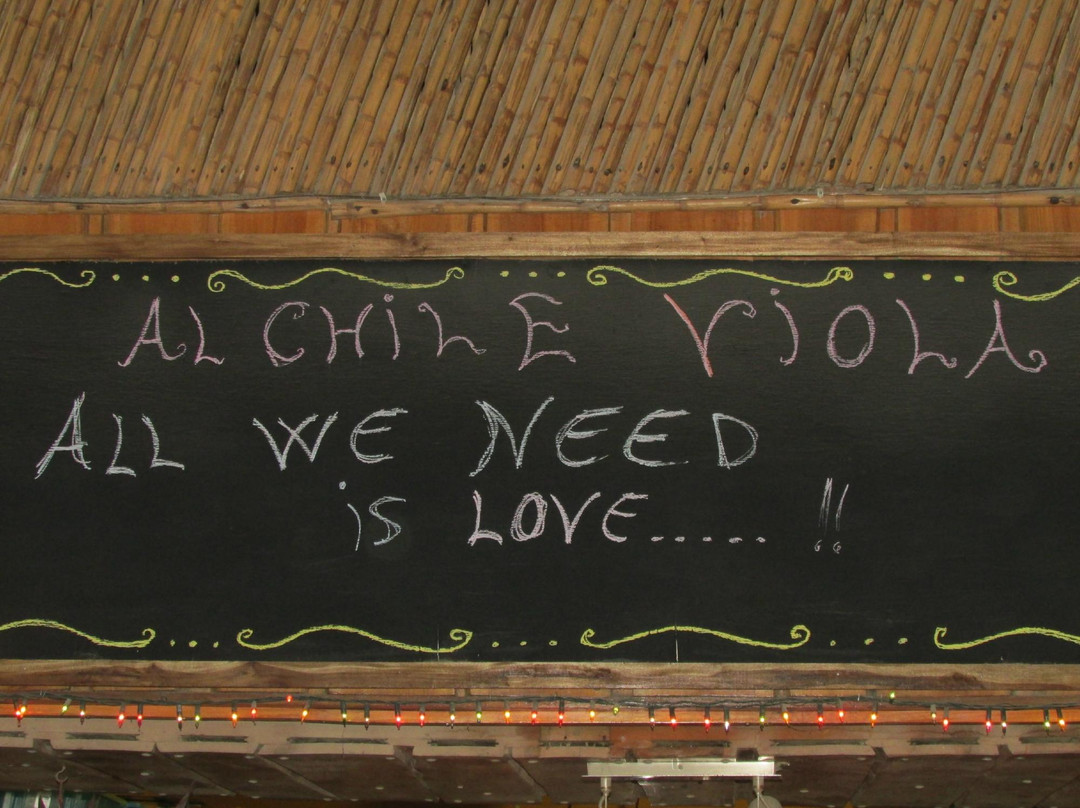 AL CHiLE ViOLA
ALL WE NEED
iS LOVE...... !!